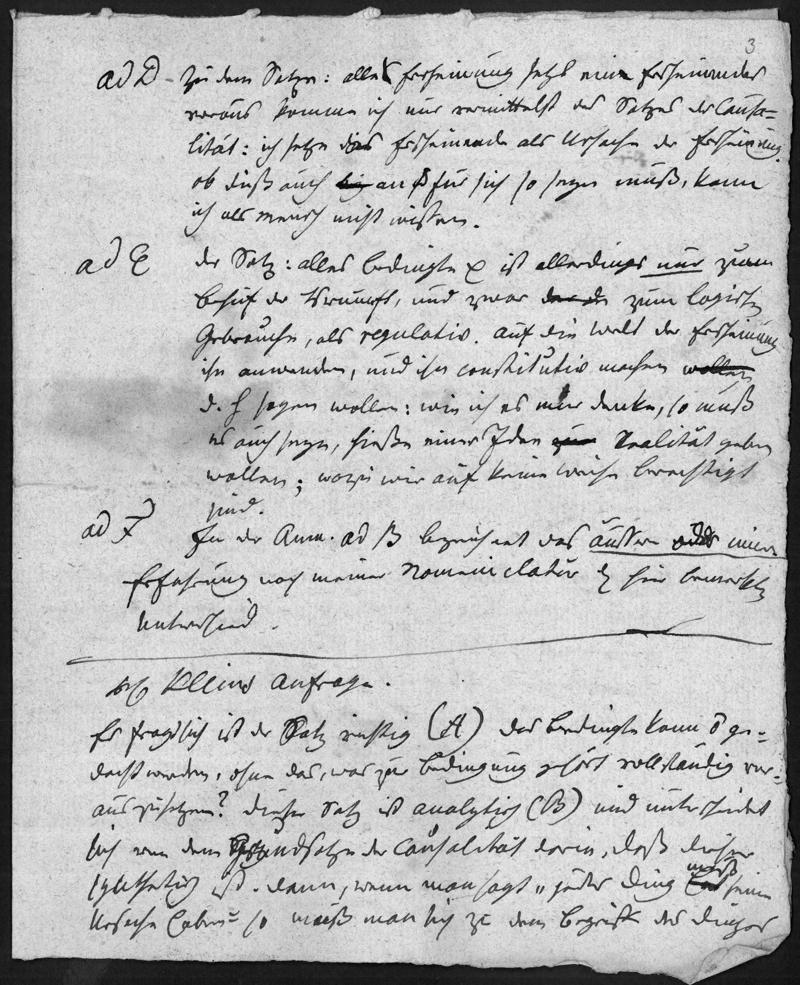 3
ad D zu dem Satze: alles Erscheinung setzt eine Erscheinendes
voraus komme ich nur vermittelst des Satzes der Causa=
lität: ich setze dies Erscheinende als Ursache der Erscheinung.
ob dieß auch an für sich so seyn muß, kann
ich als Mensch nicht wissen.
ad E der Satz: alles bedingte ist allerdings nur zum
Behuf der Vernunft, und zwar zum logischen
Gebrauche, als regulativ. auf die Welt der Erscheinung
ihn anwenden, und ihn constitutiv machen wollen
d. h sagen wollen: wie ich es mir denke, so muß
es auch seyn, hieße einer Idee Realität geben
wollen; wozu wir auf keine Weise berechtigt
sind.
ad F In der Anm. ad B bezeichnet das äussere oder innere
Erfahrung nach meiner Nomenclatur hier bemerkten
Unterschied.
Kleine Anfrage.
Es fragt sich ist der Satz richtig (A) das bedingte kann ge=
dacht werden, ohne das, was zur Bedingung gehört vollständig vor=
auszusetzen? dieser Satz ist analytisch (B) und unterscheidet
sich von dem Grundsatze der Causalität darin, daß dieser
synthetisch ist. dann, wenn man sagt „jedes Ding muß seine
Ursache haben" so muß man sich zu dem Begriff des Dinges